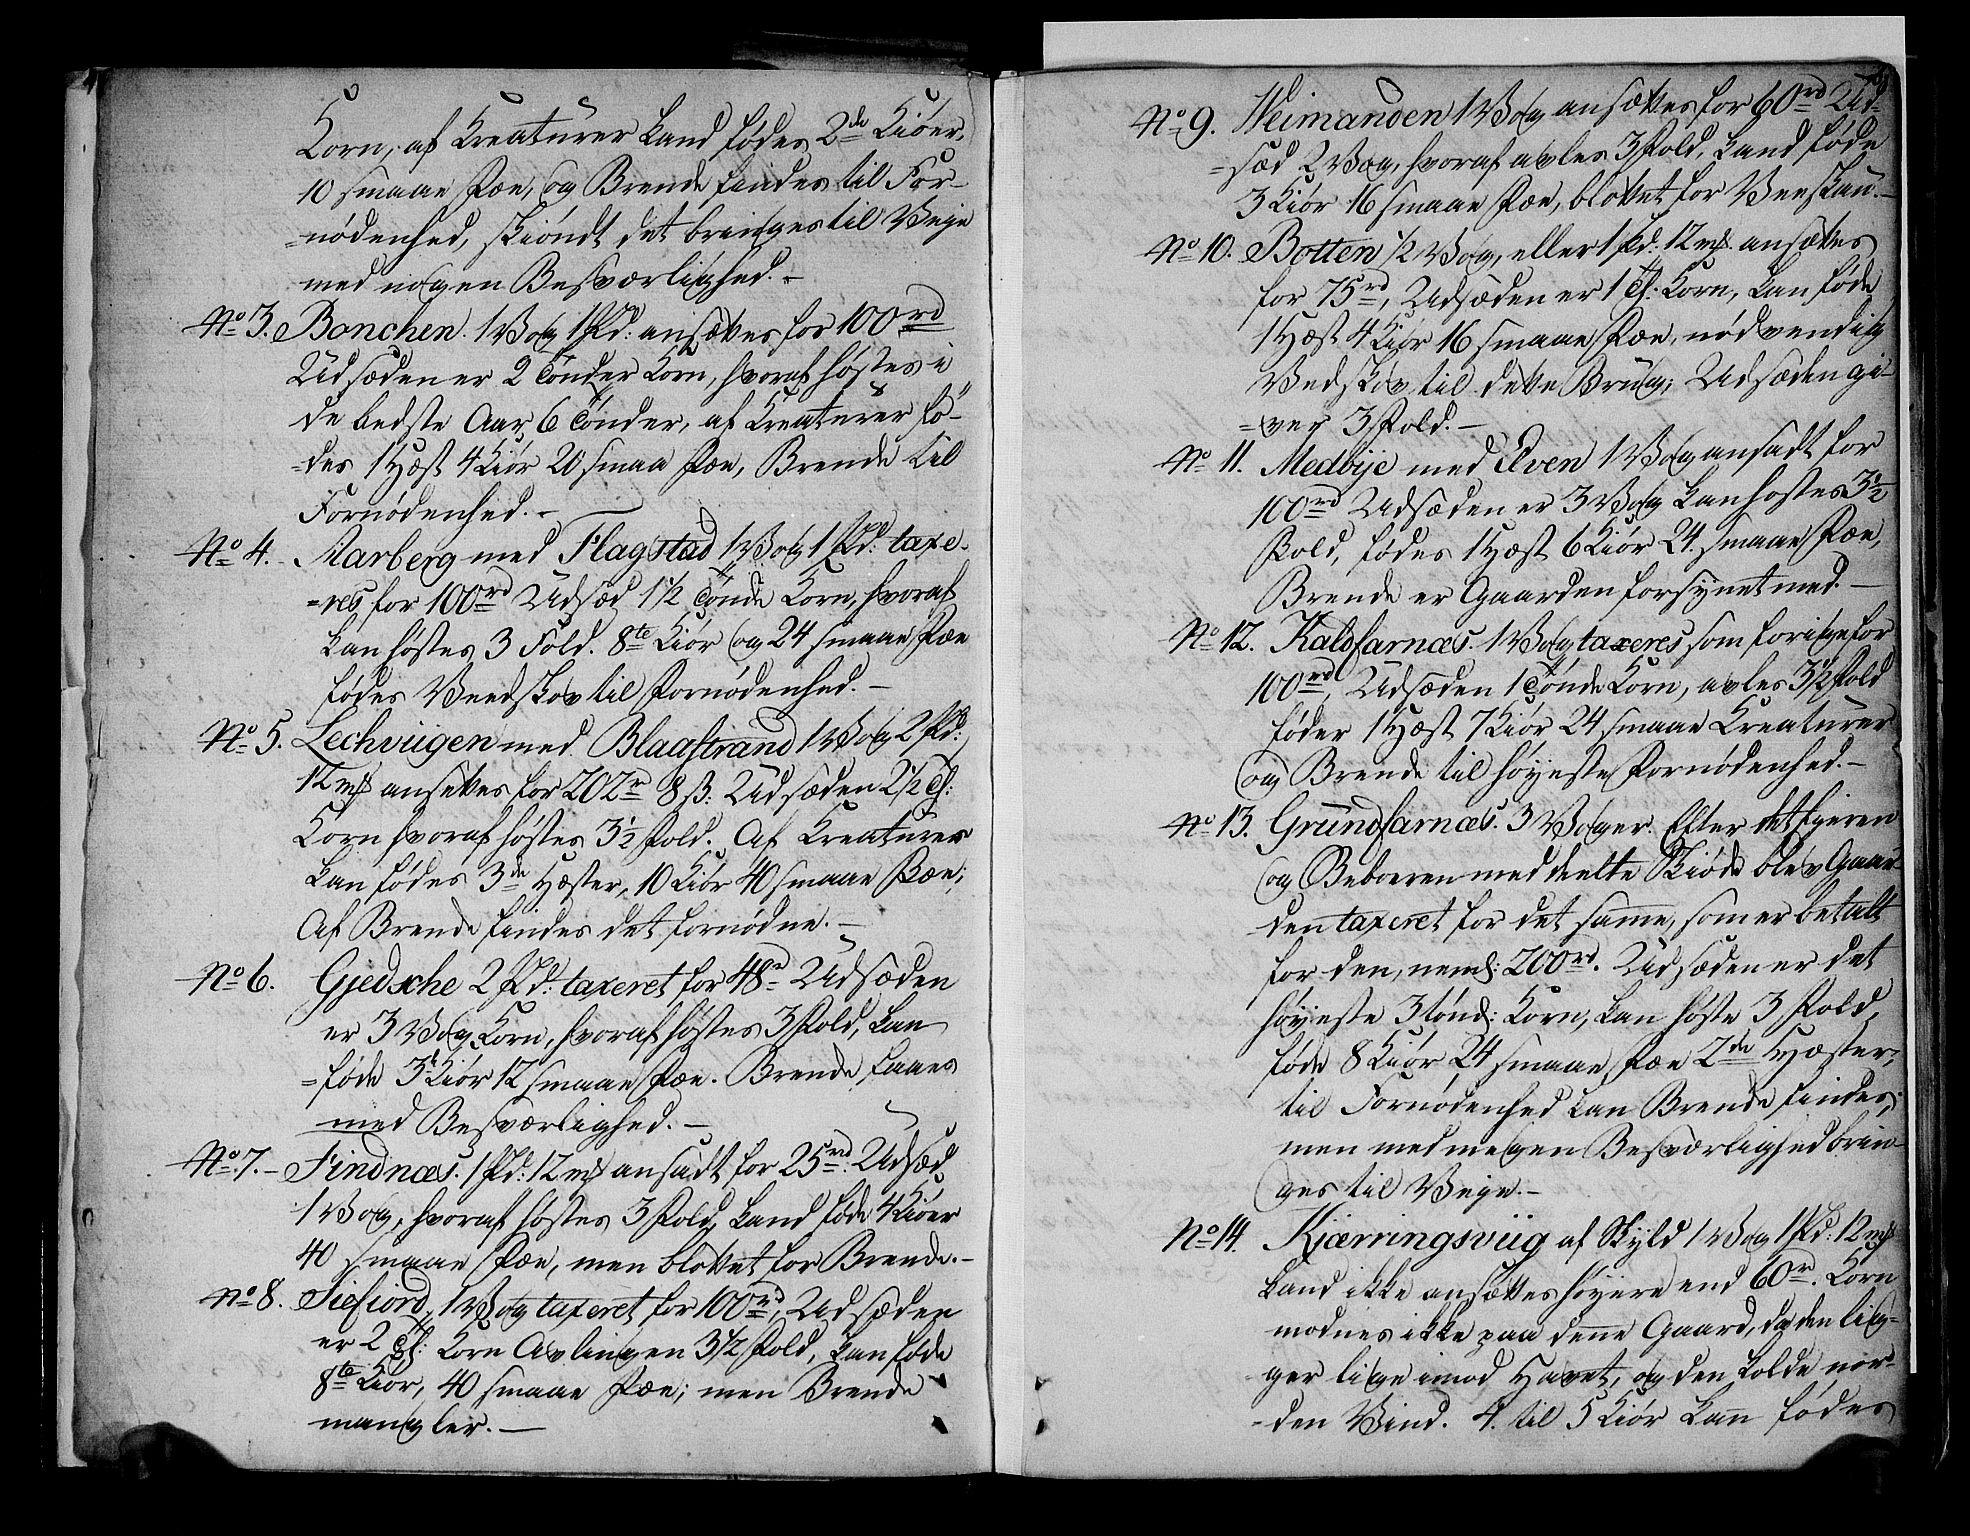 Korn, af Kreaturer kand fødes 2de Kiöer,
10 smaae Fæe, og Brende findes til For-
=nødenhed, skiöndt det bringes til Veye
med nogen Besværlighed. -
No 3. Bonchen. 1 Vog 1 Pd: ansættes for 100 rd
Udsæden er 2 Tønder Korn, hvoraf høstes i
de bedste Aar 6 Tønder, af Kreaturer fø-
=des 1 Hæst 4 Kiör 20 smaa Fæe, Brende til
Fornødenhed. -
No 4. Marberg med Flagstad 1 Vog 1 Pd: taxe-
=res for 100 rd Udsæd 1 1/2 Tønde Korn, hvoraf
kan høstes 3 Fold. 8te Kiör og 24 smaae Fæe
fødes Veedskov til Fornødenhed. -
No 5. Lechviigen med Blaafstrand 1 Vog 2 Pd:
12 mk ansettes for 202 r 8 ß: Udsæden 2 1/2 Td:
Korn hvoraf høstes 3 1/2 Fold. Af Kreaturer
kan fødes 3de Hæster, 10 Kiör 40 smaae Fæe;
Af Brende findes det fornødne. -
No 6. Gjedsche 2 Pd: taxeret for 48 rd Udsæden
er 3 Vog Korn, hvoraf høstes 3 Fold, kan
=føde 3 Kiör 12 smaae Fæe. Brende faaes
med Besværlighed. -
No 7. - Findnæs. 1 Pd: 12 mk ansadt for 25 rd: Udsæd
1 Vog, hvoraf høstes 3 Fold, kand føde 4 Kiöer
40 smaae Fæe, men blottet for Brende. -
No 8. Siefiord, 1 Vog taxeret for 100 rd, Udsæden
er 2 Td: Korn Avlingen 3 1/2 Fold, kan føde
8te Kiör, 40 smaae Fæe; men Brende
mangler. -
No 9. Weimanden 1 Vog ansættes for 60 rd Ud-
=sæd 2 Vog, hvoraf avles 3 Fold, kand føde
3 Kiör 16 smaae Fæe, blottet for Veeskau. -
No 10. Botten 1/2 Vog, eller 1 Pd: 12 mk. ansættes
for 75 rd, Udsæden er 1 Td: Korn, kan føde
1 Hæst 4 Kiör 16 smaae Fæe, nødvendig
Vedskov til dette Brug; Udsæden gi-
=ver 3 Fold. -
No 11. Medbije med Elven 1 Vog ansadt for
100 rd Udsæden er 3 Vog kan høstes 3 1/2
Fold, fødes 1 Hæst 6 Kiör 24. smaae Fæe,
Brende er Gaarden forsynet med. -
No 12. Kaldfarnæs. 1 Vog taxeres som forige for
100 rd, Udsæden 1 Tønde Korn, avles 3 1/2 Fold
føder 1 Hæst 7 Kiör 24 smaae Kreaturer
og Brende til høyeste Fornødenhed. -
No 13. Grundfarnæs. 3 Voger. Efter det Ejeren
og Beboeren meddeelte Skiöde blev Gaar-
den taxeret for det samme, som er betalt
for den, neml: 200 rd. Udsæden er det
høyeste 3 tönd: Korn, kan høste 3 Fold,
føde 8 Kiör 24 smaae Fæe 2de Hæster;
til Fornødenhed kan Brende findes;
men med megen Besværlighed brin-
ges til Veye. -
No 14. Kjærringsviig af Skyld 1 Vog 1 Pd: 12 mk
kand ikke ansættes høyere end 60 rd. Korn
modnes ikke paa denne Gaard, da den lig-
ger lige imod Havet, og den kolde nor-
den Vind. 4. til 5 Kiör kan fødes